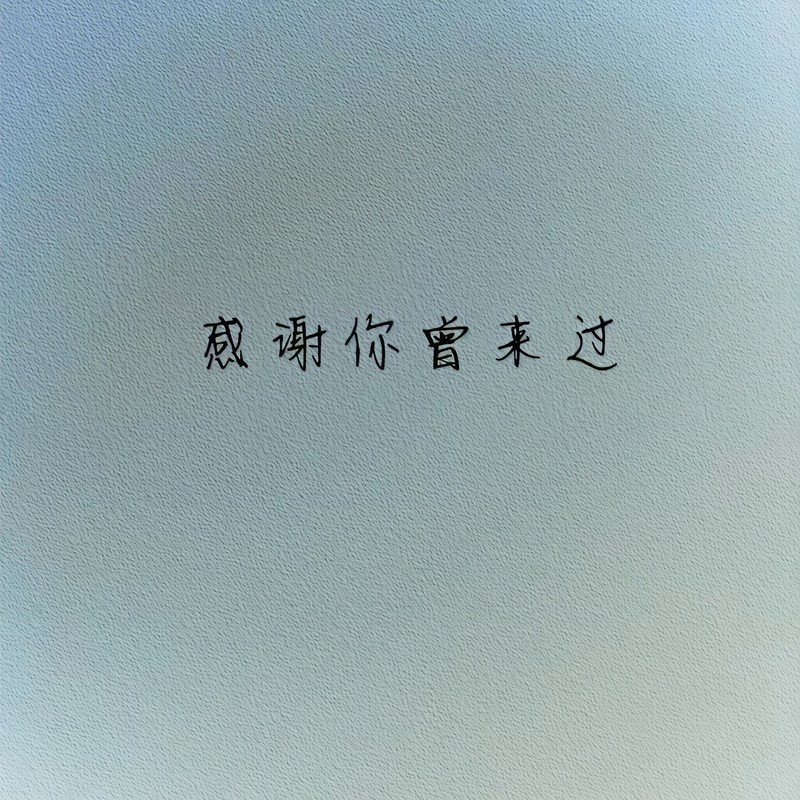 感谢你曾来过